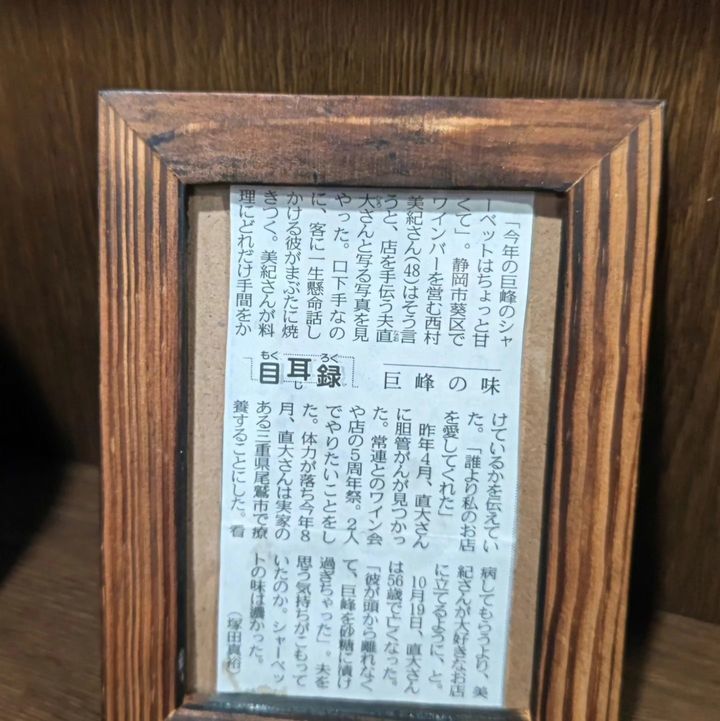 巨峰の味
目耳録
もく じ ろく
「今年の巨峰のシャ
ーベットはちょっと甘
くて」。静岡市葵区で
ワインバーを営む西村
美紀さん(48)はそう言
うと、店を手伝う夫直
大さんと写る写真を見
やった。口下手なの
に、客に一生懸命話し
かける彼がまぶたに焼
きつく。美紀さんが料
理にどれだけ手間をか
けているかを伝えてい
た。「誰より私のお店
を愛してくれた」
昨年4月、直大さん
に胆管がんが見つかっ
た。常連とのワイン会
や店の5周年祭。2人
でやりたいことをし
た。体力が落ち今年8
月、直大さんは実家の
ある三重県尾鷲市で療
養することにした。看
病してもらうより、美
紀さんが大好きなお店
に立てるように、と。
10月19日、直大さん
は56歳で亡くなった。
「彼が頭から離れなく
て、巨峰を砂糖に漬け
過ぎちゃった」。夫を
思う気持ちがこもって
いたのか。シャーベッ
トの味は濃かった。
(塚田真裕)